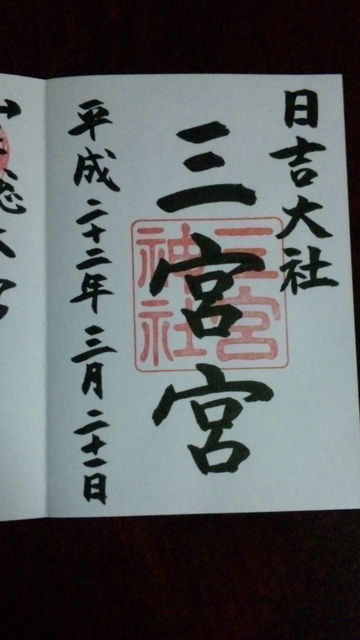 日吉大社
三宮宮
三宮神社
平成二十二年三月二十一日